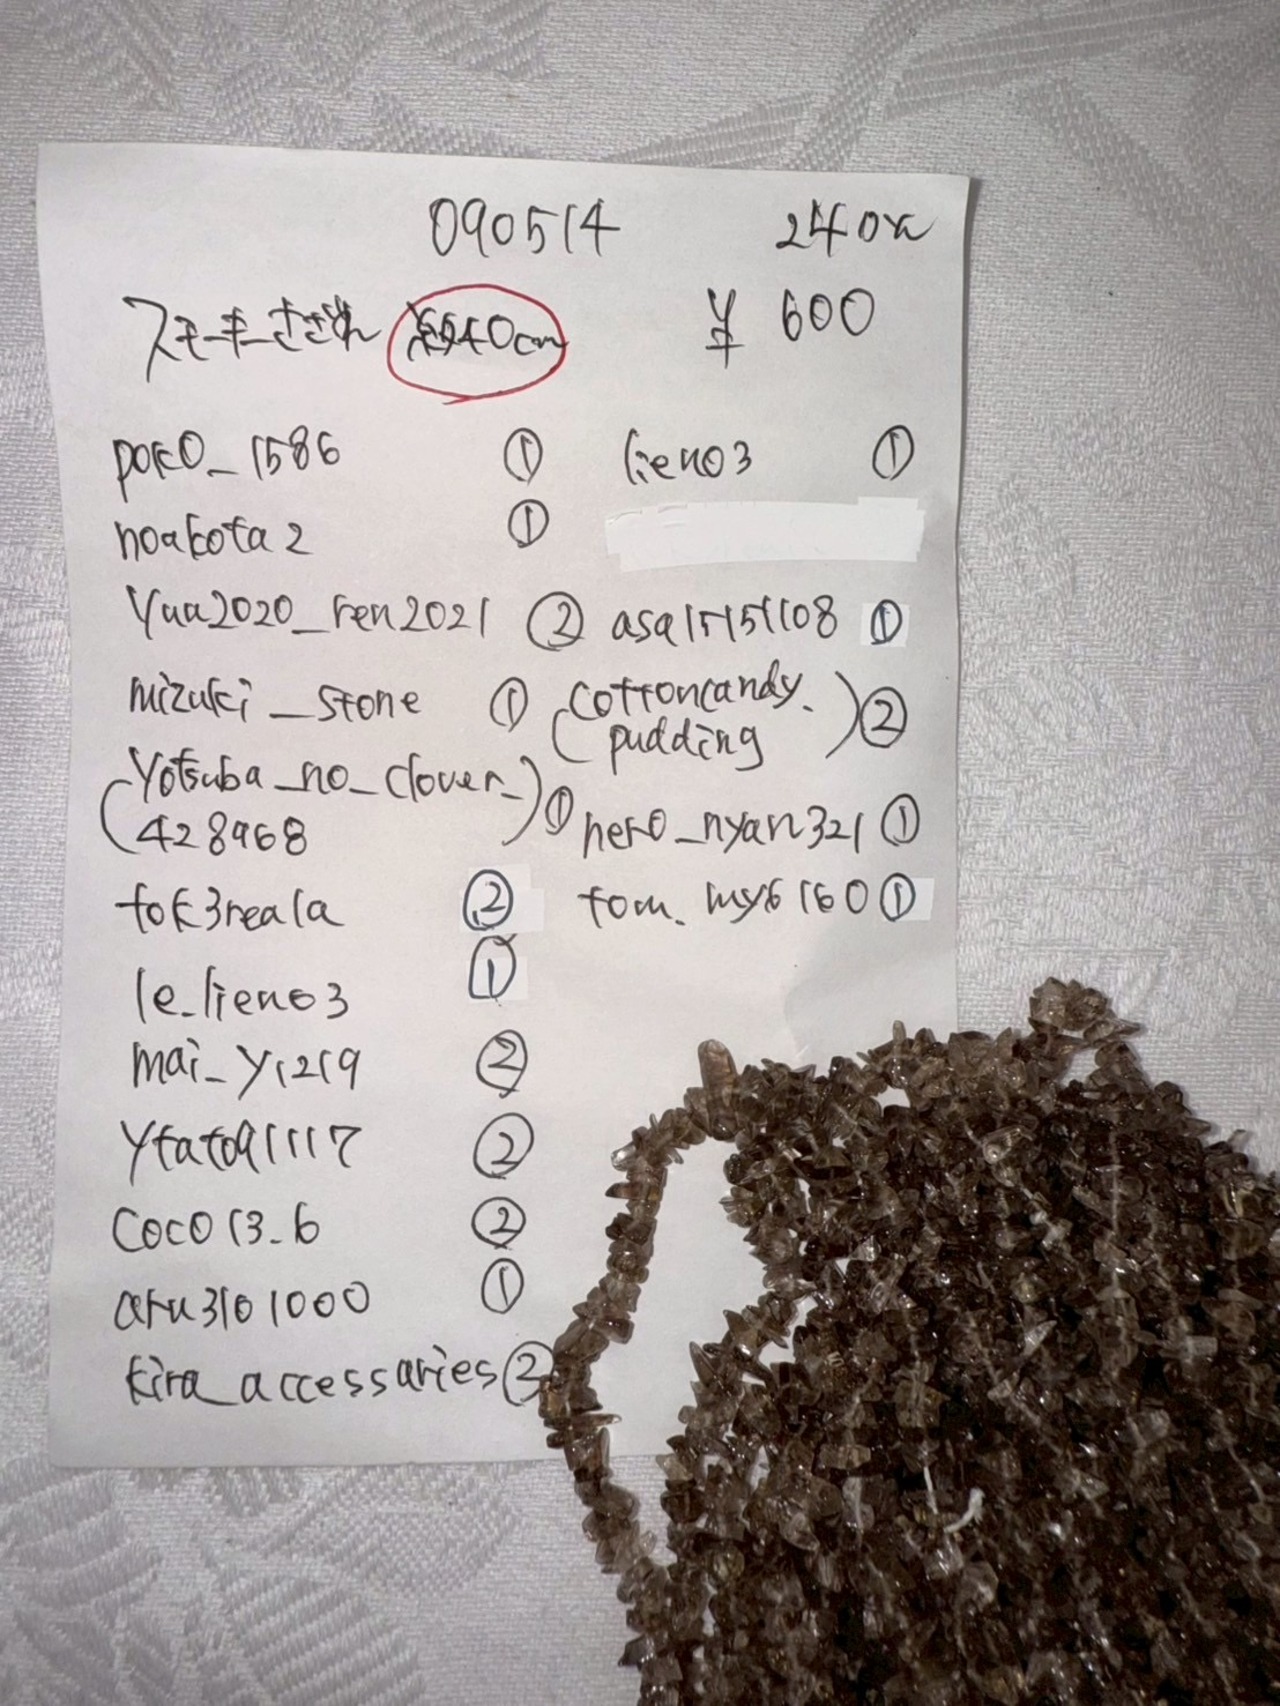 090514 240g
スモーキーさざれ 約40cm ¥600
poko_1586 ①
noakota2 ①
yua2020_ren2021 ②
mizuki_stone ①
(yotsuba_no_clover_
428968) ①
tok3reala ②
le_lieno3 ①
mai_y1219 ②
ytato91117 ②
coco13_6 ②
aru3101000 ①
kira_accessaries ②
lieno3 ①
asa15151108 ①
(cottoncandy.
pudding) ②
nero_nyan321 ①
tom.my6160 ①